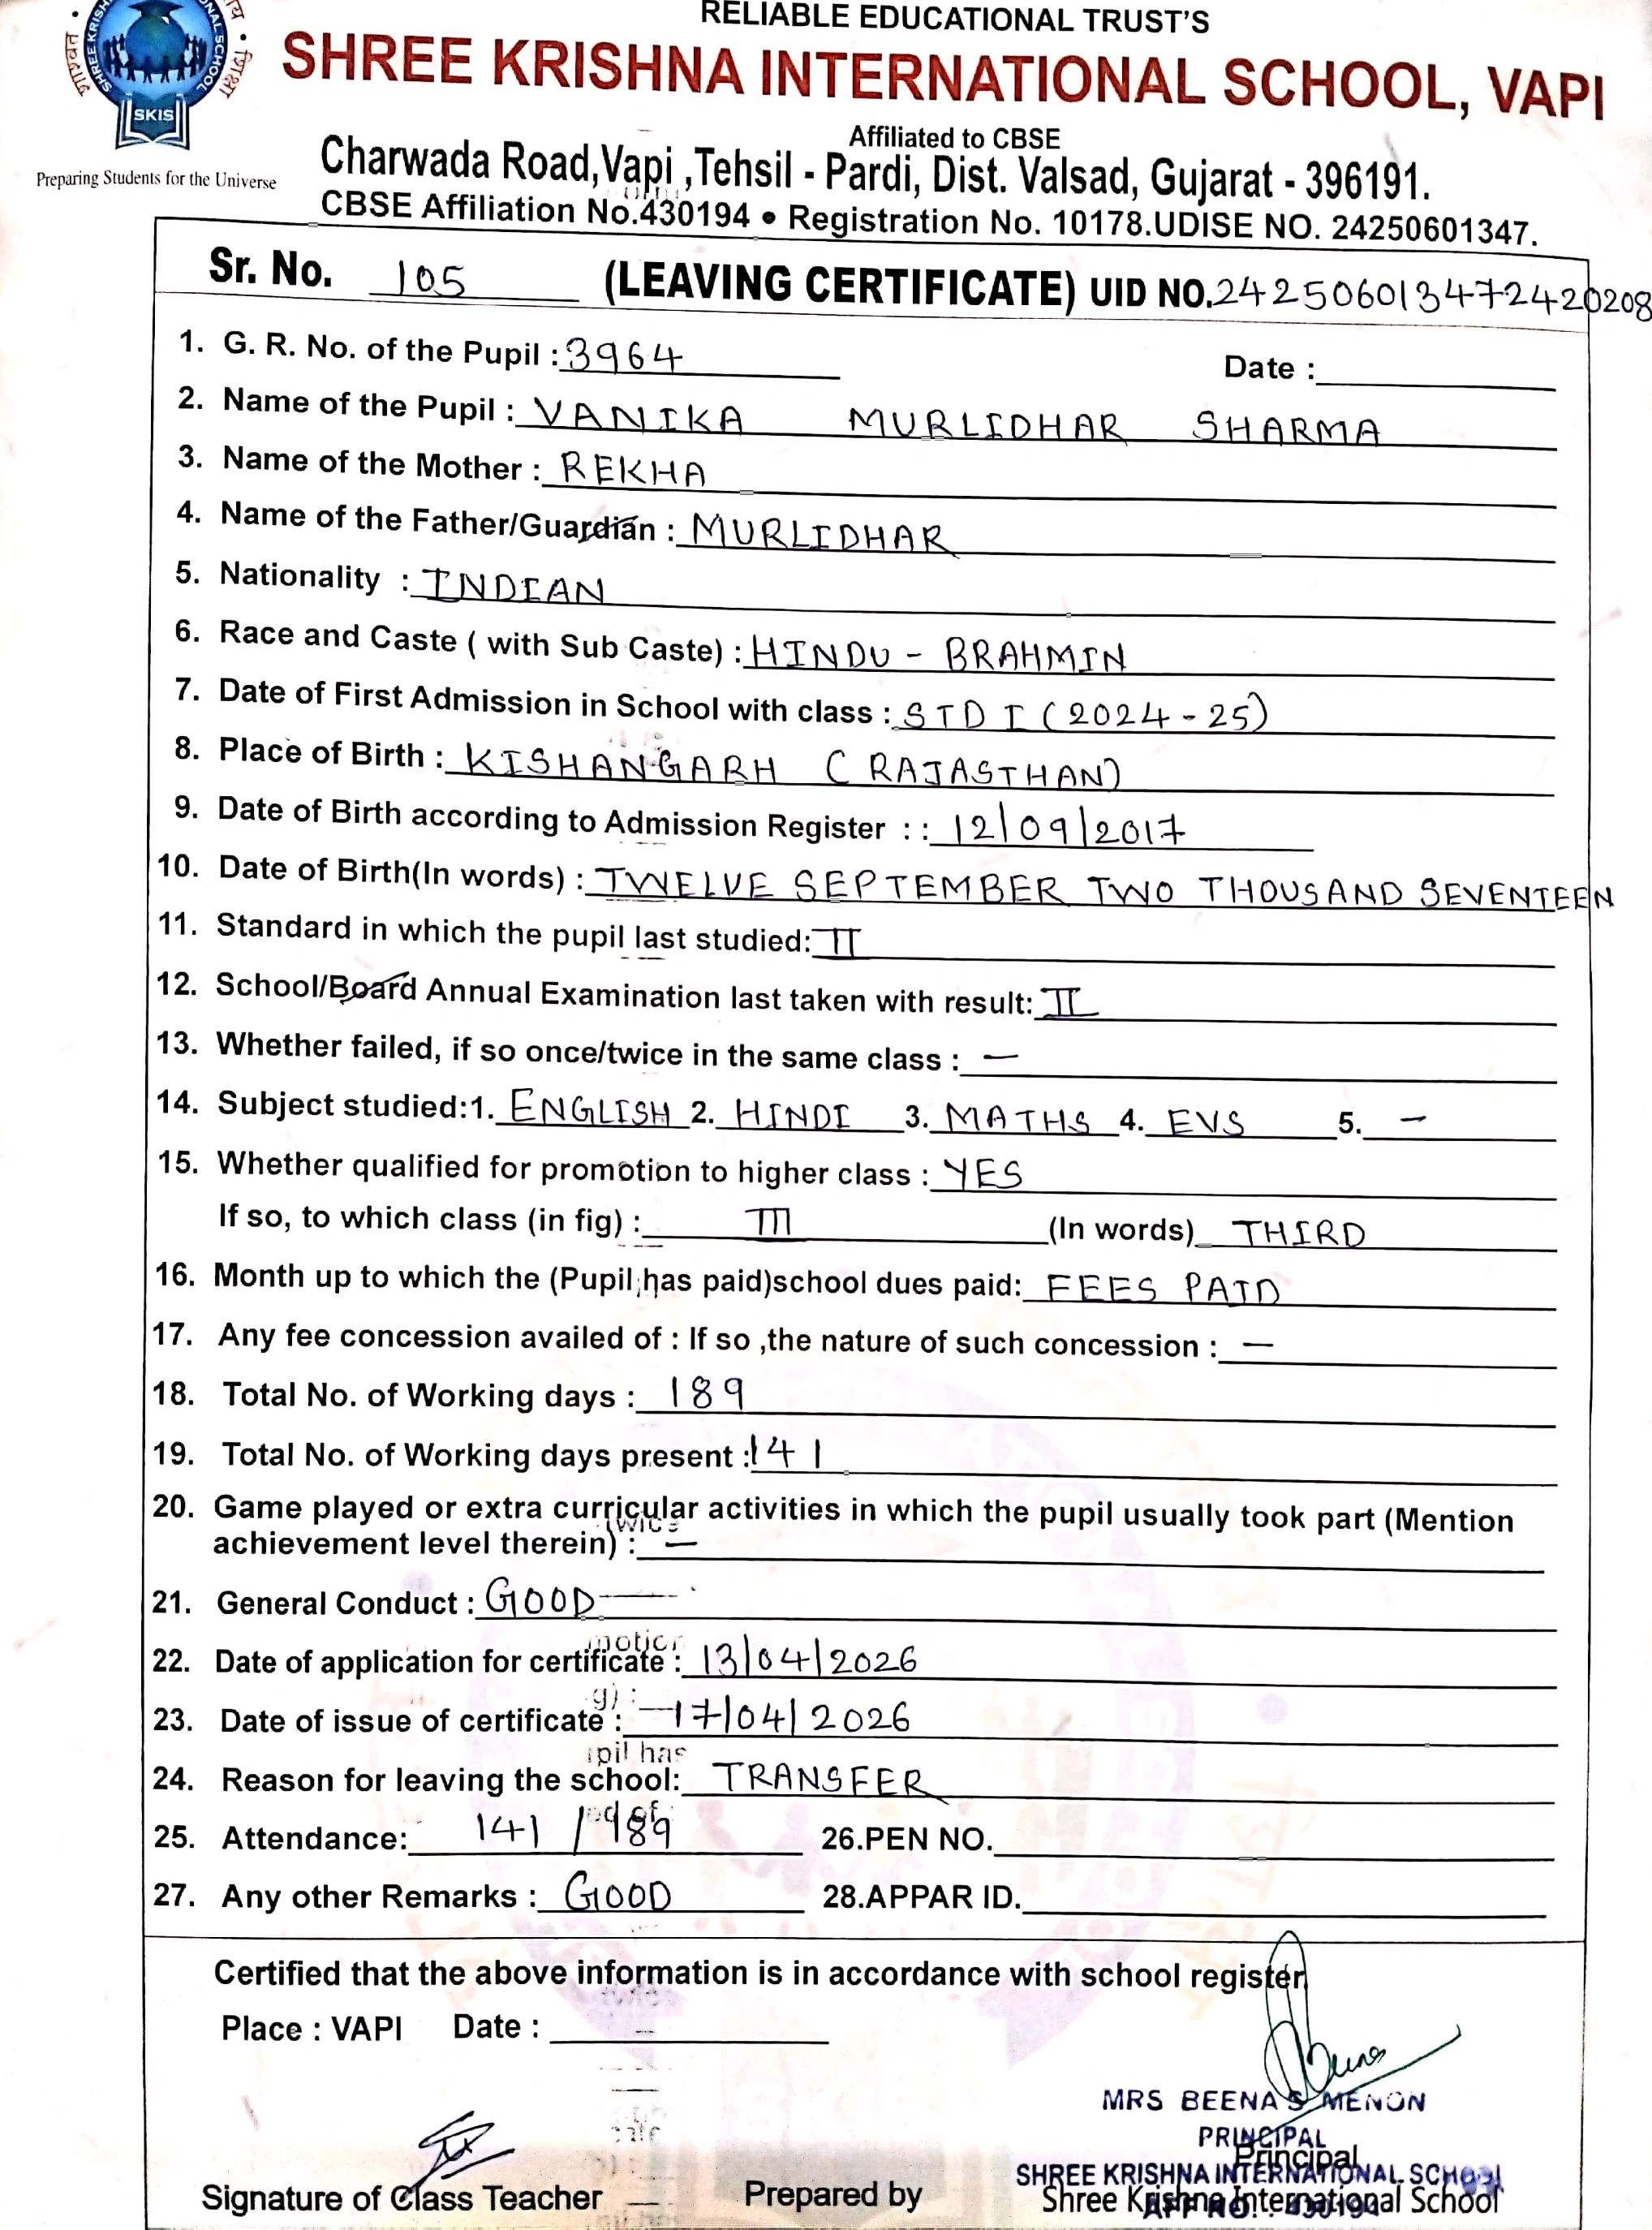 RELIABLE EDUCATIONAL TRUST'S
SHREE KRISHNA INTERNATIONAL SCHOOL, VAPI
SKIS
Preparing Students for the Universe
Affiliated to CBSE
Charwada Road,Vapi ,Tehsil - Pardi, Dist. Valsad, Gujarat - 396191.
CBSE Affiliation No.430194 • Registration No. 10178.UDISE NO. 24250601347.
Sr. No. 105 (LEAVING CERTIFICATE) UID NO.242506013472420208
1. G. R. No. of the Pupil : 3964 Date :
2. Name of the Pupil : VANIKA MURLIDHAR SHARMA
3. Name of the Mother : REKHA
4. Name of the Father/Guardian : MURLIDHAR
5. Nationality : INDIAN
6. Race and Caste ( with Sub Caste) : HINDU - BRAHMIN
7. Date of First Admission in School with class : STD I (2024-25)
8. Place of Birth : KISHANGARH (RAJASTHAN)
9. Date of Birth according to Admission Register : : 12/09/2017
10. Date of Birth(In words) : TWELVE SEPTEMBER TWO THOUSAND SEVENTEEN
11. Standard in which the pupil last studied: II
12. School/Board Annual Examination last taken with result: II
13. Whether failed, if so once/twice in the same class : —
14. Subject studied:1. ENGLISH 2. HINDI 3. MATHS 4. EVS 5. —
15. Whether qualified for promotion to higher class : YES
If so, to which class (in fig) : III (In words) THIRD
16. Month up to which the (Pupil has paid)school dues paid: FEES PAID
17. Any fee concession availed of : If so ,the nature of such concession : —
18. Total No. of Working days : 189
19. Total No. of Working days present : 141
20. Game played or extra curricular activities in which the pupil usually took part (Mention
achievement level therein) : —
21. General Conduct : GOOD
22. Date of application for certificate : 13/04/2026
23. Date of issue of certificate : 17/04/2026
24. Reason for leaving the school: TRANSFER
25. Attendance: 141 / 189 26.PEN NO.
27. Any other Remarks : GOOD 28.APPAR ID.
Certified that the above information is in accordance with school register
Place : VAPI Date :
MRS BEENA S MENON
PRINCIPAL
Principal
SHREE KRISHNA INTERNATIONAL SCHOOL
Signature of Class Teacher Prepared by Shree Krishna International School